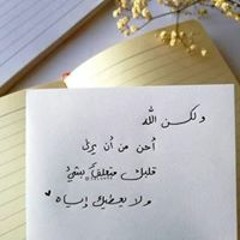 ولكن الله
أحن من أن يرى
قلبك متعلقاً بشيءٍ
ولا يعطيك إياه